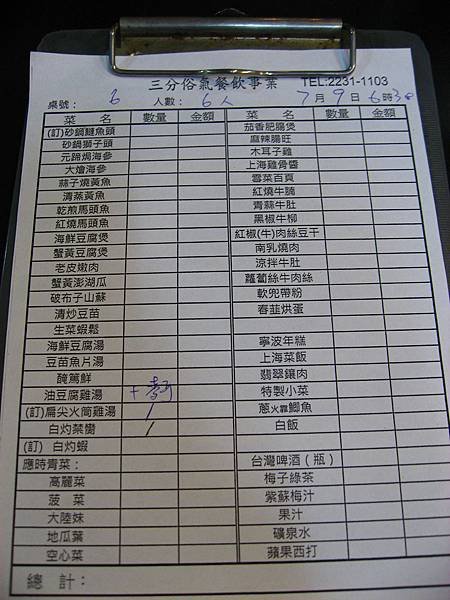 三分俗氣餐飲事業 TEL:2231-1103
桌號： 6 人數： 6人 7月9日6時30
菜 名 數量 金額 菜 名 數量 金額
(訂)砂鍋鰱魚頭 茄香肥腸煲
砂鍋獅子頭 麻辣腸旺
元蹄焗海參 木耳子雞
大㸆海參 上海雞骨醬
蒜子燒黃魚 雪菜百頁
清蒸黃魚 紅燒牛腩
乾煎馬頭魚 青蒜牛肚
紅燒馬頭魚 黑椒牛柳
海鮮豆腐煲 紅椒(牛)肉絲豆干
蟹黃豆腐煲 南乳燒肉
老皮嫩肉 涼拌牛肚
蟹黃澎湖瓜 蘿蔔絲牛肉絲
破布子山蘇 軟兜帶粉
清炒豆苗 春韮烘蛋
生菜蝦鬆
海鮮豆腐湯 寧波年糕
豆苗魚片湯 上海菜飯
醃篤鮮 翡翠鑲肉
油豆腐雞湯 特製小菜
(訂)扁尖火筒雞湯 / 蔥火靠鯽魚
白灼禁臠 / 白飯
(訂) 白灼蝦
應時青菜： 台灣啤酒（瓶）
高麗菜 梅子綠茶
菠 菜 紫蘇梅汁
大陸妹 果汁
地瓜葉 礦泉水
空心菜 蘋果西打
總 計：